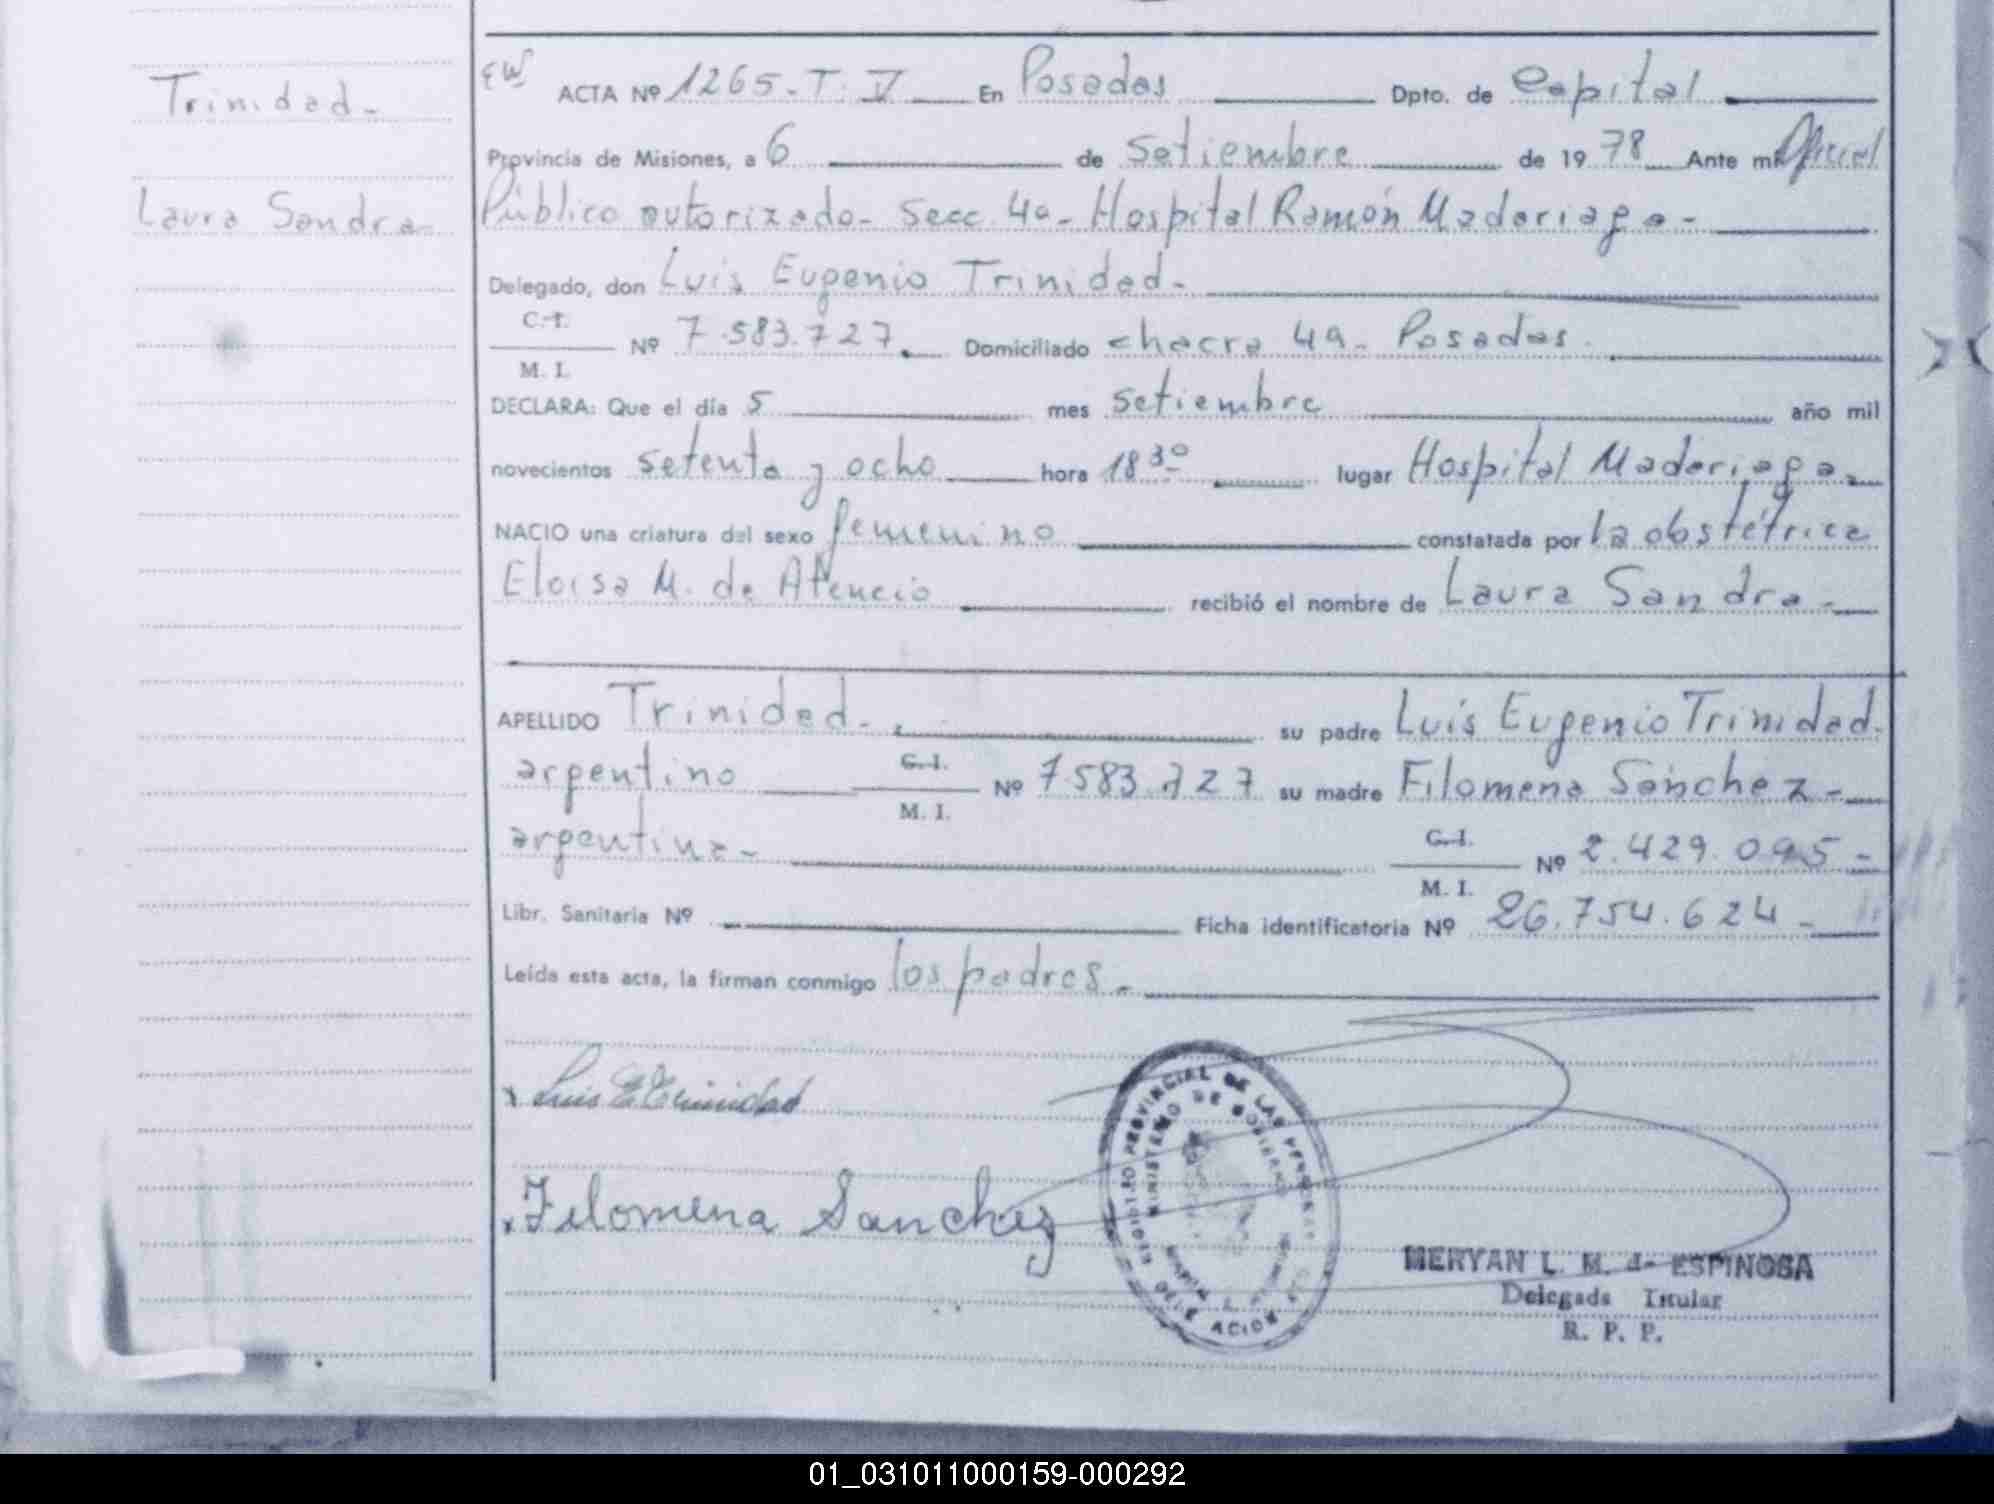 Trinidad-
Laura Sandra-
EW ACTA Nº 1265-T. V En Posadas Dpto. de Capital
Provincia de Misiones, a 6 de Setiembre de 1978 Ante mi Oficial
Público autorizado- Secc. 4a- Hospital Ramón Madariaga-
Delegado, don Luis Eugenio Trinidad-
C. I.
M. I. Nº 7.583.727. Domiciliado chacra 49- Posadas.
DECLARA: Que el día 5 mes Setiembre año mil
novecientos setenta y ocho hora 18 30 lugar Hospital Madariaga-
NACIO una criatura del sexo femenino constatada por la obstétrica
Eloisa M. de Atencio recibió el nombre de Laura Sandra-
APELLIDO Trinidad- su padre Luis Eugenio Trinidad.
argentino C. I.
M. I. Nº 7.583.727 su madre Filomena Sánchez-
argentina- C. I.
M. I. Nº 2.429.095-
Libr. Sanitaria Nº Ficha identificatoria Nº 26.754.624-
Leída esta acta, la firman conmigo los padres-
x Luis E Trinidad
x Filomena Sanchez
REGISTRO PROVINCIAL DE LAS PERSONAS
MINISTERIO DE GOBIERNO
MERYAN L. M. de ESPINOSA
Delegada Titular
R. P. P.
01_031011000159-000292